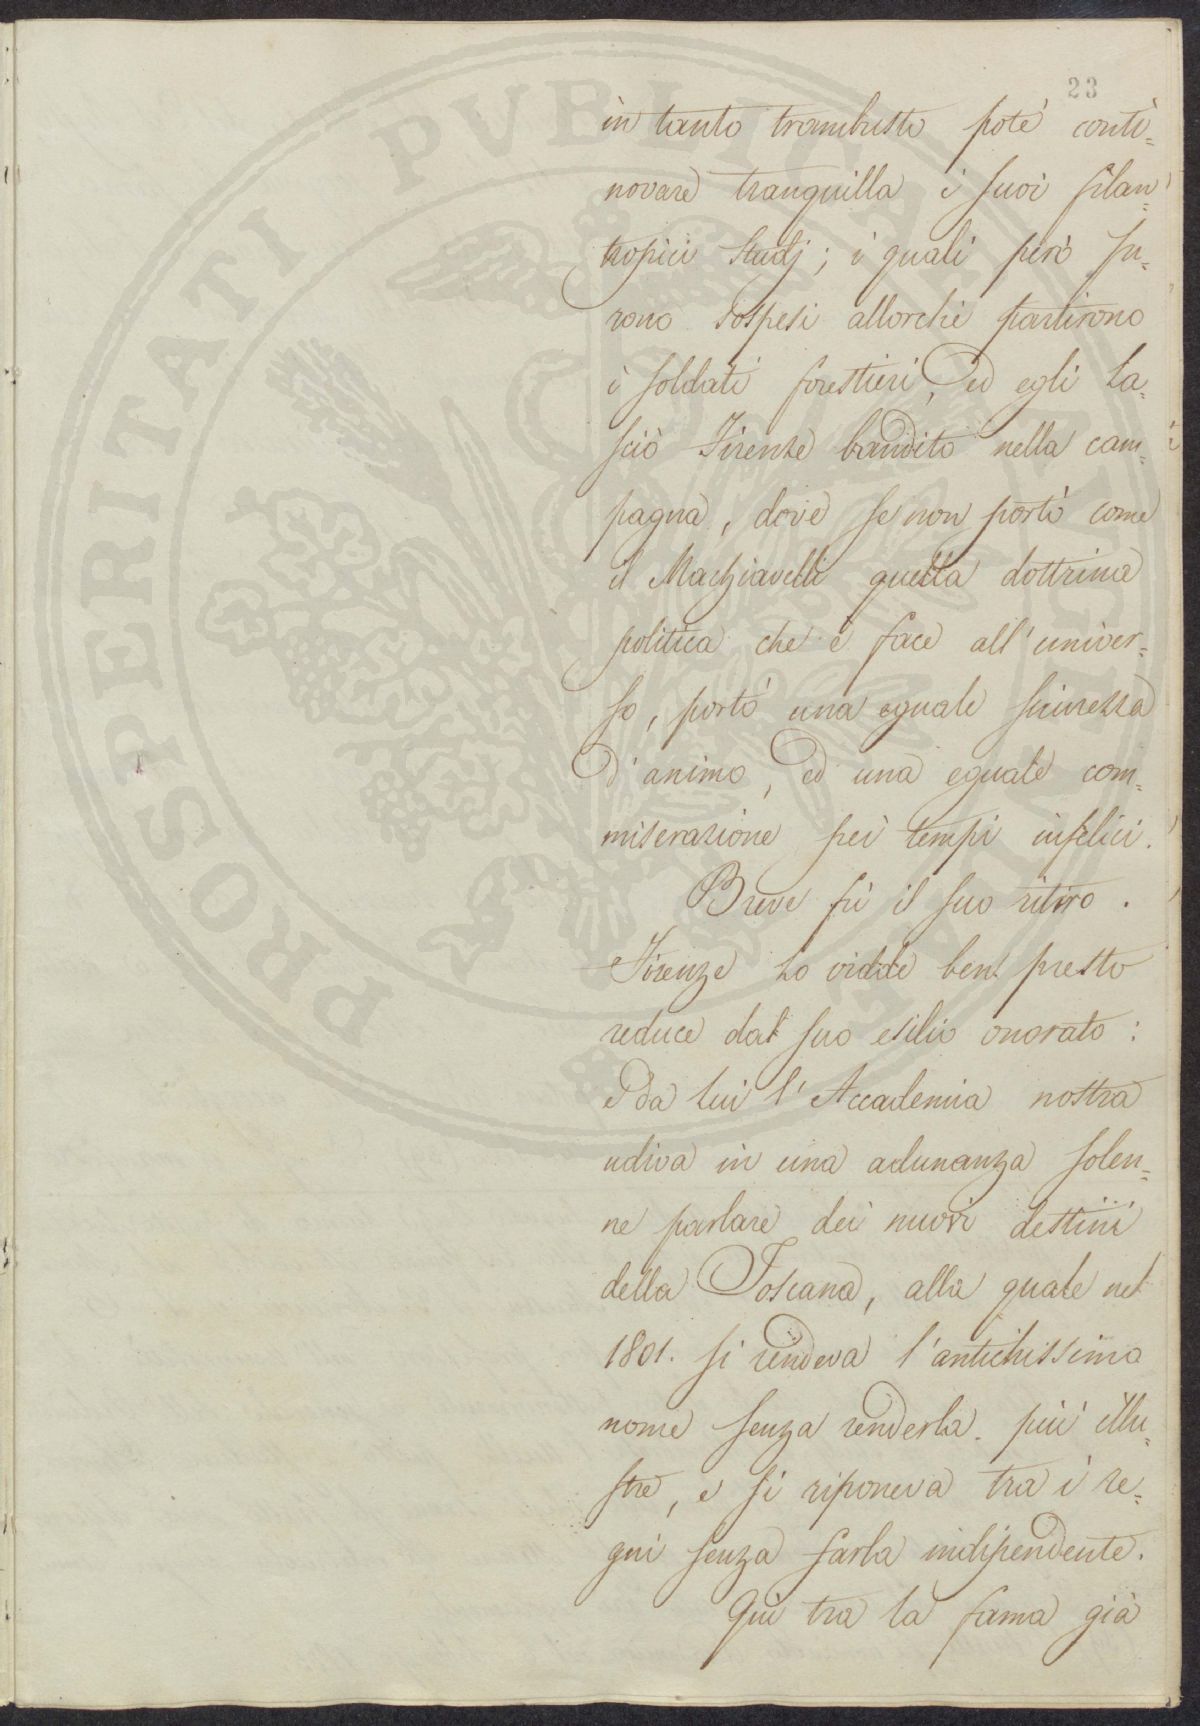 23
in tanto trambusto potè conti=
novare tranquilla i suoi filan=
tropici studj; i quali però fu=
rono sospesi allorchè partirono
i soldati forestieri, ed egli la=
sciò Firenze bandito nella cam=
pagna, dove se non portò come
il Machiavelli quella dottrina
politica che è face all'univer=
so, portò una eguale
d'animo, ed una eguale com=
miserazione pei tempi infelici.
Breve fù il suo ritiro.
Firenze lo vidde ben presto
reduce dal suo esilio onorato:
e da lui l'Accademia nostra
udiva in una adunanza solen=
ne parlare dei nuovi destini
della Toscana, alla quale nel
1801. si rendeva l'antichissimo
nome senza renderla più illu=
stre, e si riponeva tra i re=
gni senza farla indipendente.
Qui tra la fama già
PROSPERITATI PVBLICAE AVGENDAE